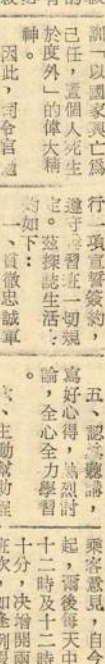 訓「以國家興亡為
己任,置個人死生
於度外」的偉大精
神。
因此,司令官勉
行一項宣誓簽約,
遵守學習班一切規
定。茲探誌生活公
約如下:
一、貫徹忠誠軍
五、認真聽講,
寫好心得,熱烈討
論,全心全力學習
。
六、主動幫助
乘客意見,自今
起,爾後每天中
十二時及十二時
十分,決增開兩
班次,如逢例假